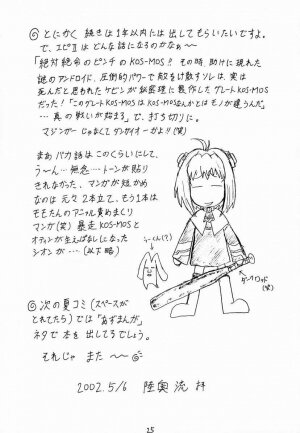 ◎とにかく 続きは1年以内には出してもらいたいですよ。
で、エピⅡはどんな話になるのかなぁ〜
「絶対絶命のピンチのKOS-MOS? その時、助けに現れた
謎のアンドロイド、圧倒的パワーで敵を倒すソレは、実は
死んだと思われたケビンが秘密裡に製作したグレートKOS-MOS
だった!「このグレートKOS-MOSはKOS-MOSなんかとはモノが違うんだ」
…真の戦いが始まる」で、打ち切りに。
マジンガーじゃなくてダンガイオーかよ!!(笑)
まあバカ話はこのくらいにして、
う〜ん…無念…トーンが貼り
きれなかった、マンガが短かめ
なのは元々2本立で、もう1本は
モモたんのアニャル責めまくり
マンガ(笑) 暴走KOS-MOSと
オティンが生えぱなしになった
シオンが…(以下略)
うーくん(?)
◎次の夏コミ(スペースが
とれてたら)では「あずまんが」
ネタで本を出してるでしょう。
それじゃ また 〜〜◎
2002.5/6 陸奥 流 拝
25